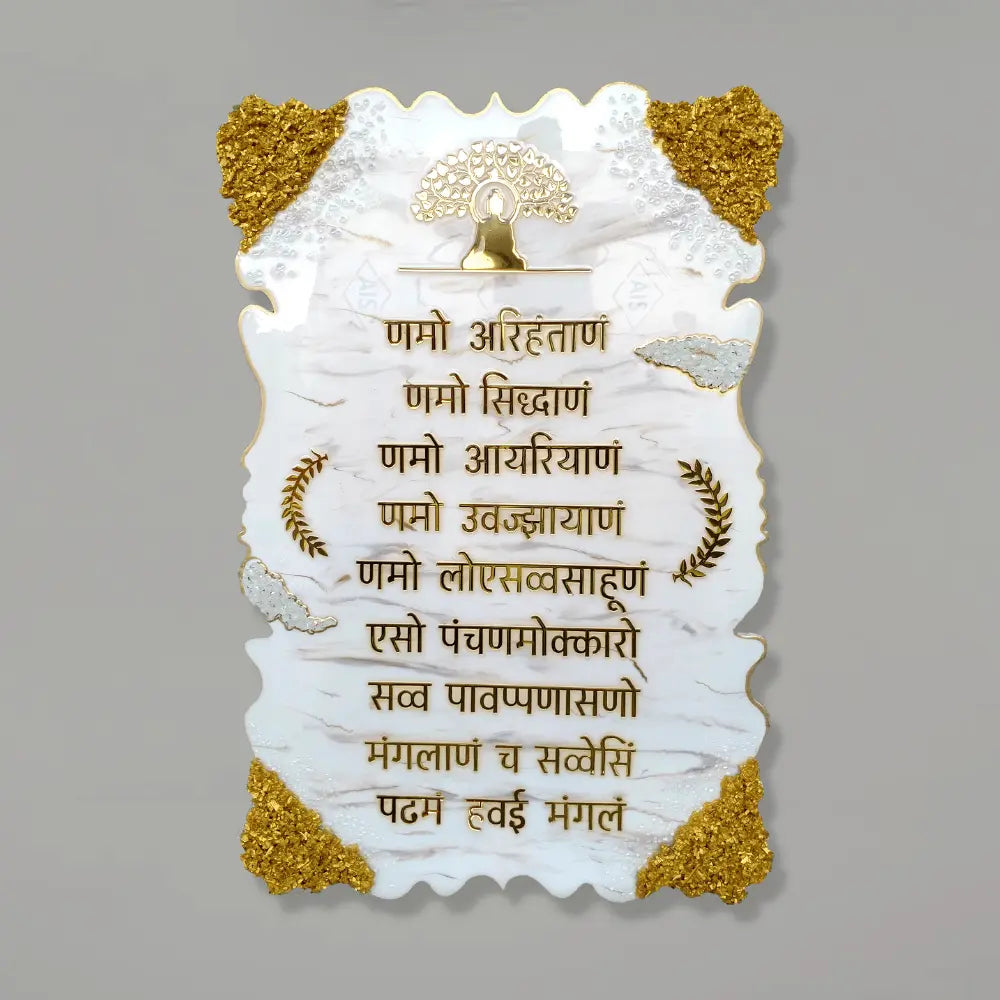 AIS
AIS
णमो अरिहंताणं
णमो सिद्धाणं
णमो आयरियाणं
णमो उवज्झायाणं
णमो लोएसव्वसाहूणं
एसो पंचणमोक्कारो
सव्व पावप्पणासणो
मंगलाणं च सव्वेसिं
पढमं हवई मंगलं